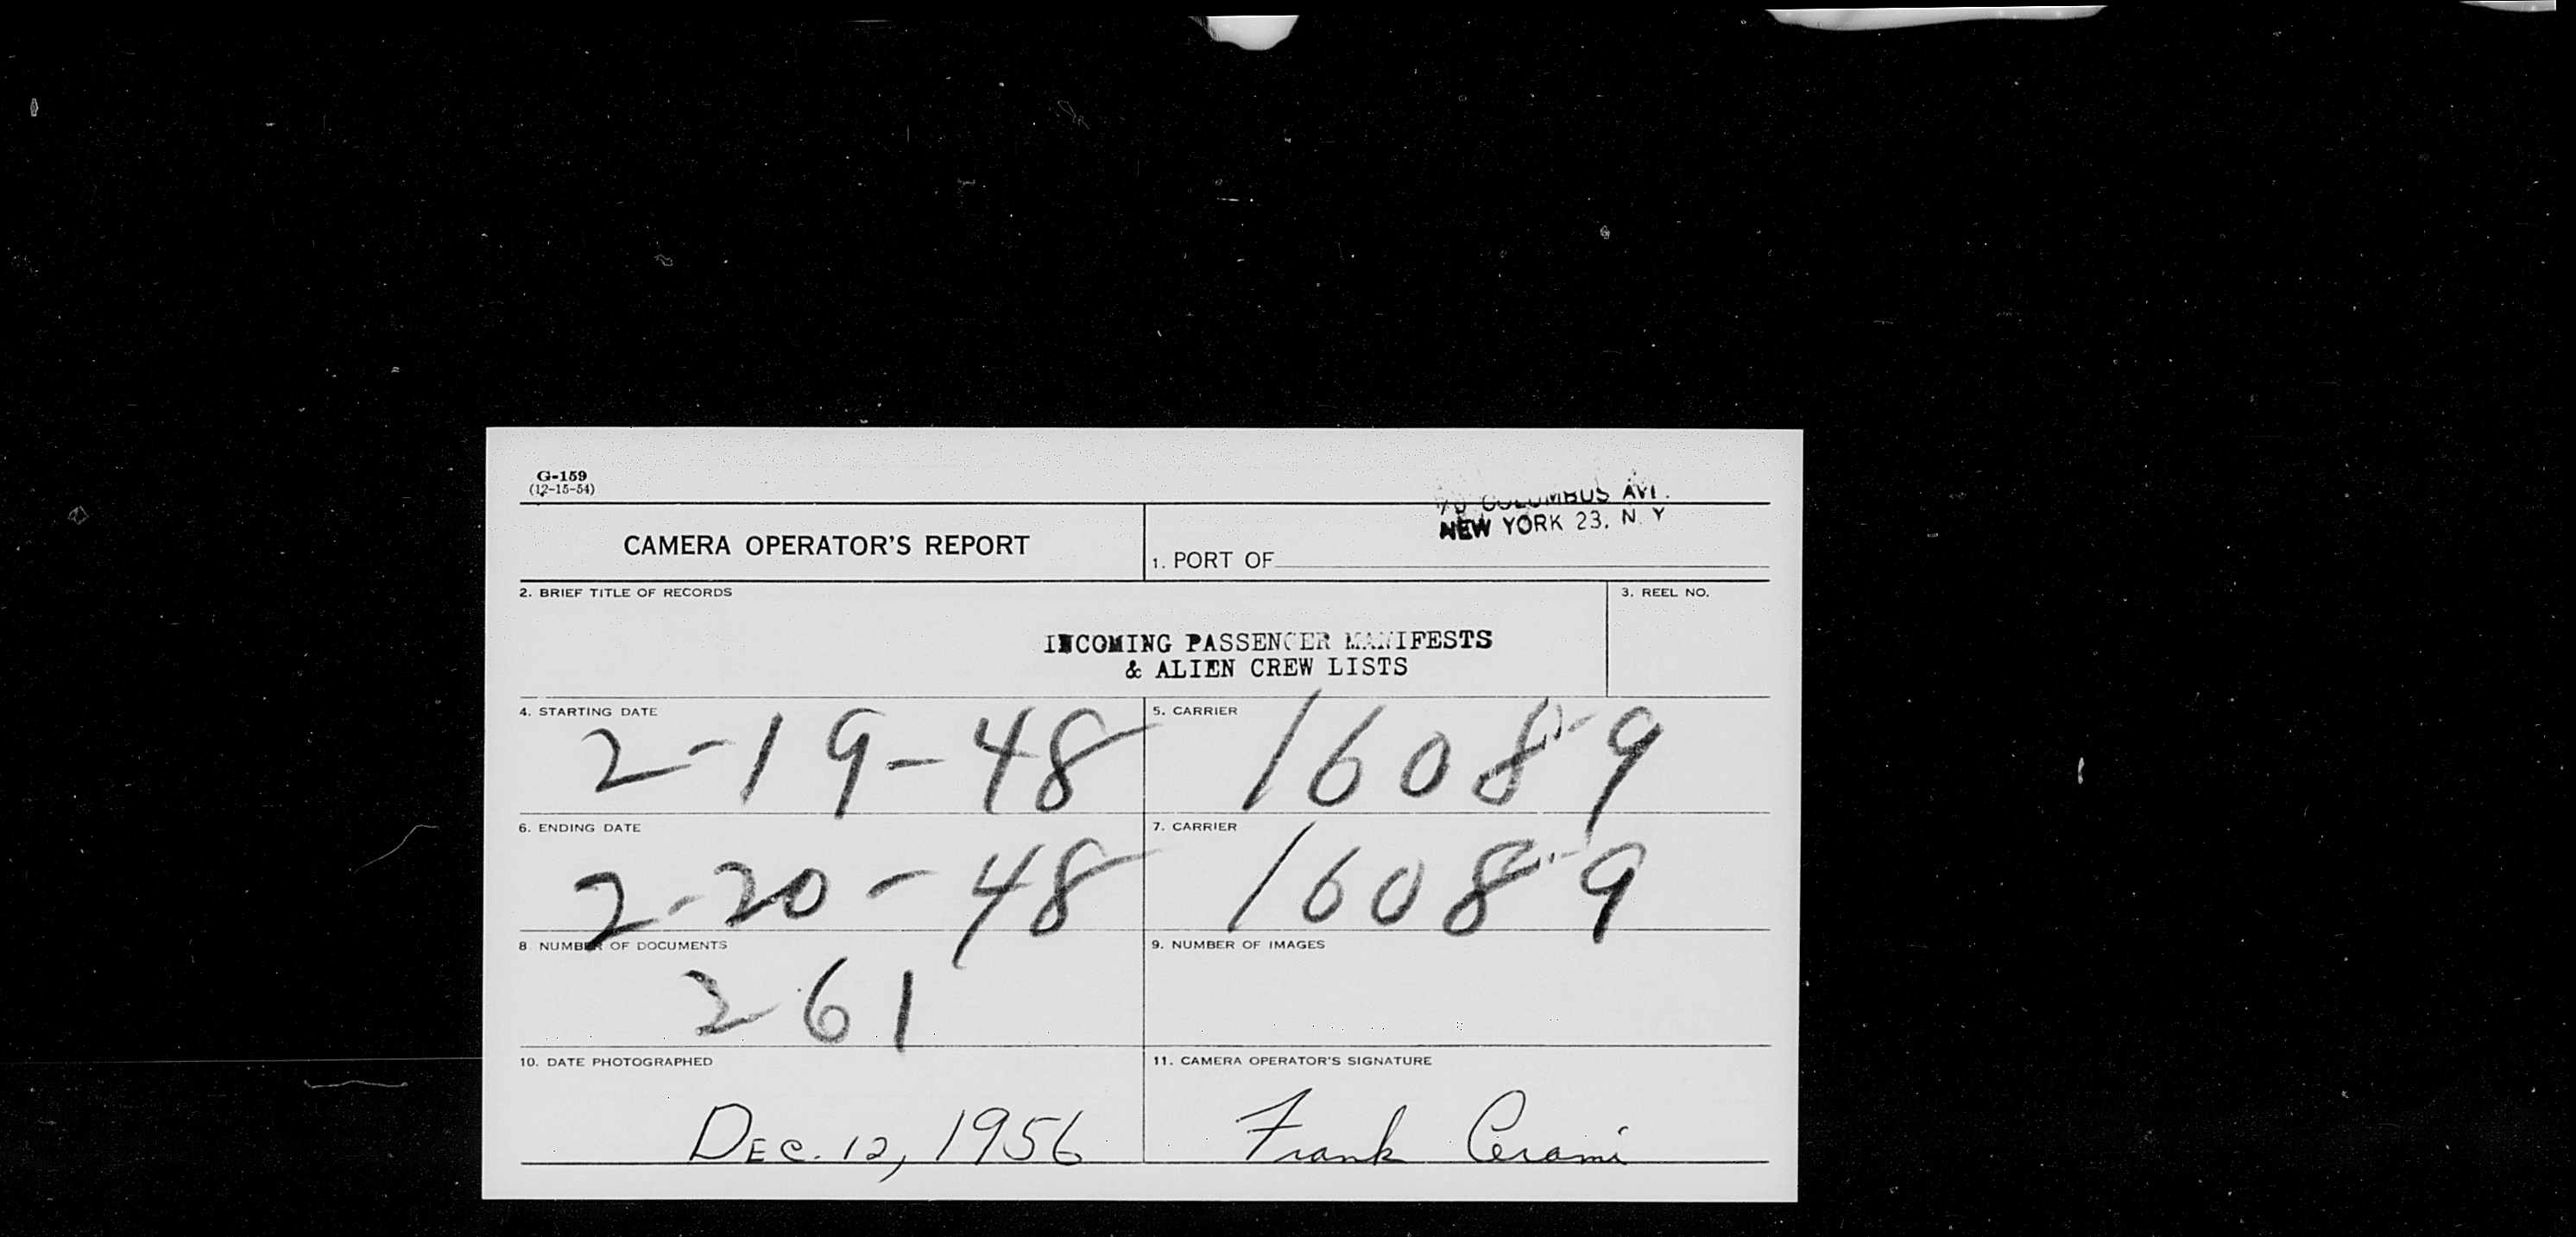 G-159
(12-15-54)
COLUMBUS AVE.
NEW YORK 23, N. Y
CAMERA OPERATOR'S REPORT
1. PORT OF
2. BRIEF TITLE OF RECORDS
3. REEL NO.
INCOMING PASSENGER MANIFESTS
& ALIEN CREW LISTS
4. STARTING DATE
2-19-48
5. CARRIER
16089
6. ENDING DATE
2-20-48
7. CARRIER
16089
8 NUMBER OF DOCUMENTS
261
9. NUMBER OF IMAGES
10. DATE PHOTOGRAPHED
DEC. 12, 1956
11. CAMERA OPERATOR'S SIGNATURE
Frank Cerami